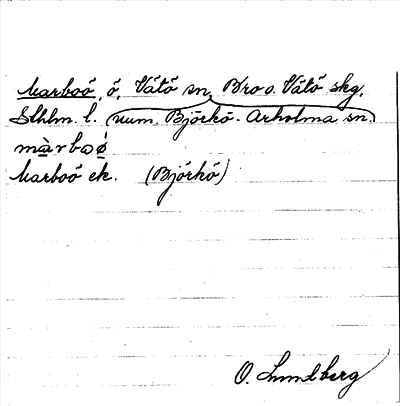 Marboö, ö, Vätö sn, Bro o. Vätö skg,
Sthlm. l. (num. Björkö-Arholma sn.)
màrboǿ
Marboö ek. (Björkö)
O. Lundberg